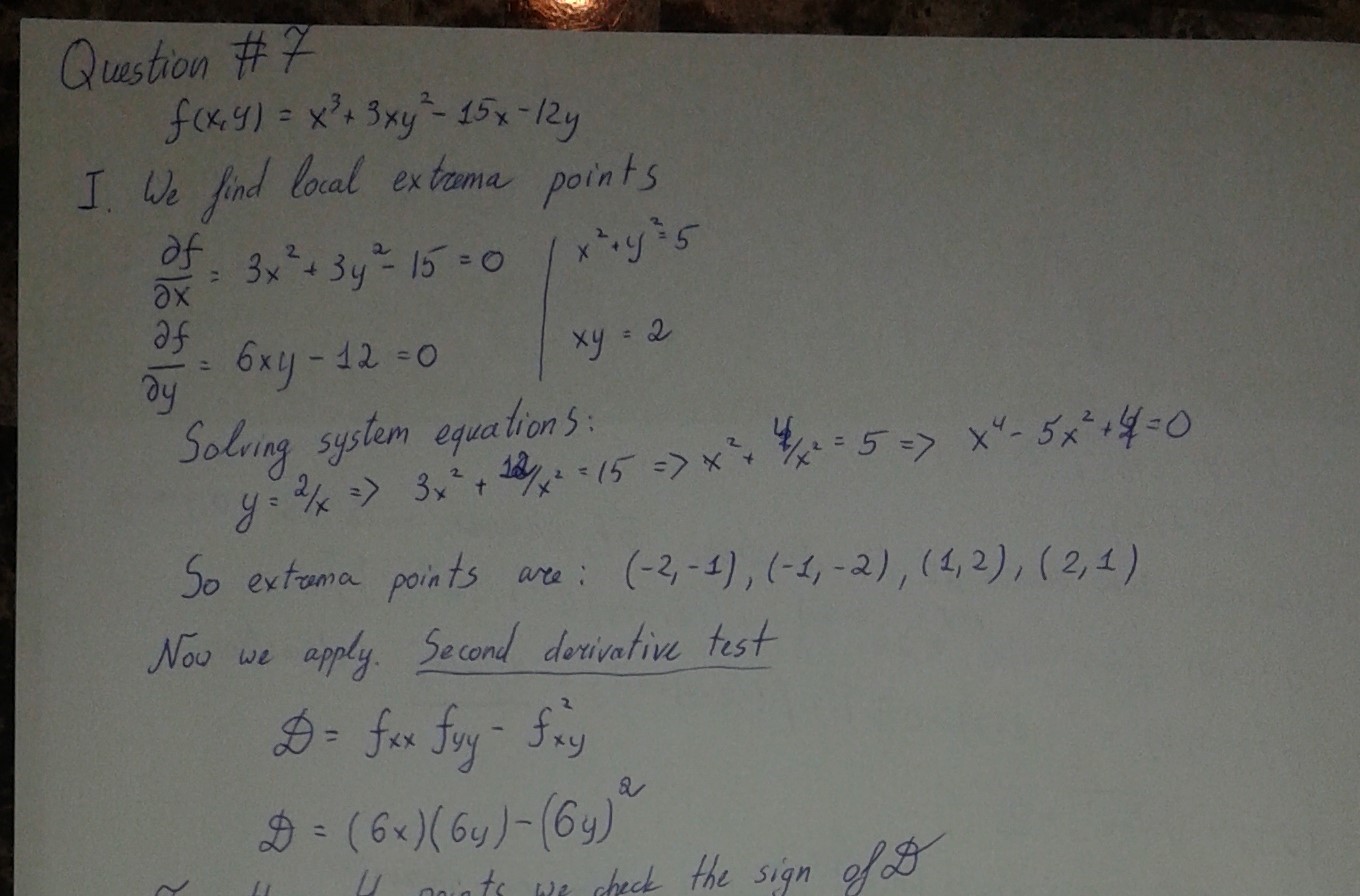 Question #7
f(x,y) = x³ + 3xy² - 15x - 12y
I. We find local extrema points
∂f/∂x = 3x² + 3y² - 15 = 0 | x² + y² = 5
∂f/∂y = 6xy - 12 = 0 | xy = 2
Solving system equations:
y = 2/x => 3x² + 12/x² = 15 => x² + 4/x² = 5 => x⁴ - 5x² + 4 = 0
So extrema points are: (-2,-1), (-1,-2), (1,2), (2,1)
Now we apply. Second derivative test
D = fxx fyy - f²xy
D = (6x)(6y) - (6y)²
points we check the sign of D